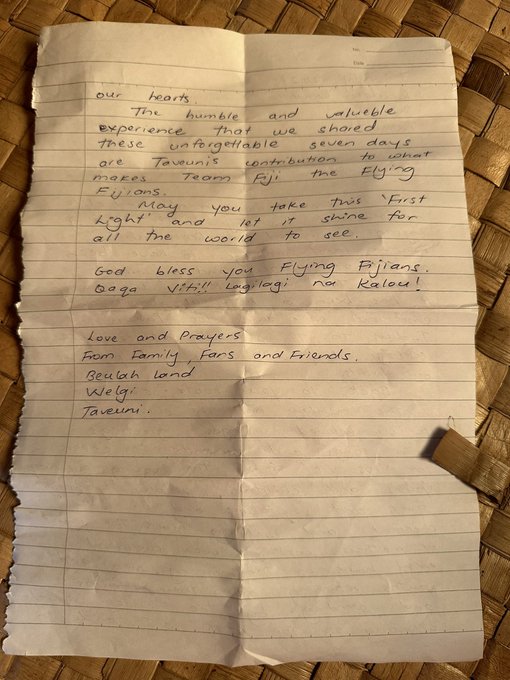 No.
Date
our hearts
The humble and valueble
experience that we shared
these unforgettable seven days
are Taveunis contribution to what
makes Team Fiji the Flying
Fijians.
May you take this 'First
Light' and let it shine for
all the world to see.
God bless you Flying Fijians.
Qaqa Viti!! Lagilagi na Kalou!
Love and Prayers
From Family, Fans and Friends.
Beulah Land
Welgi
Taveuni.